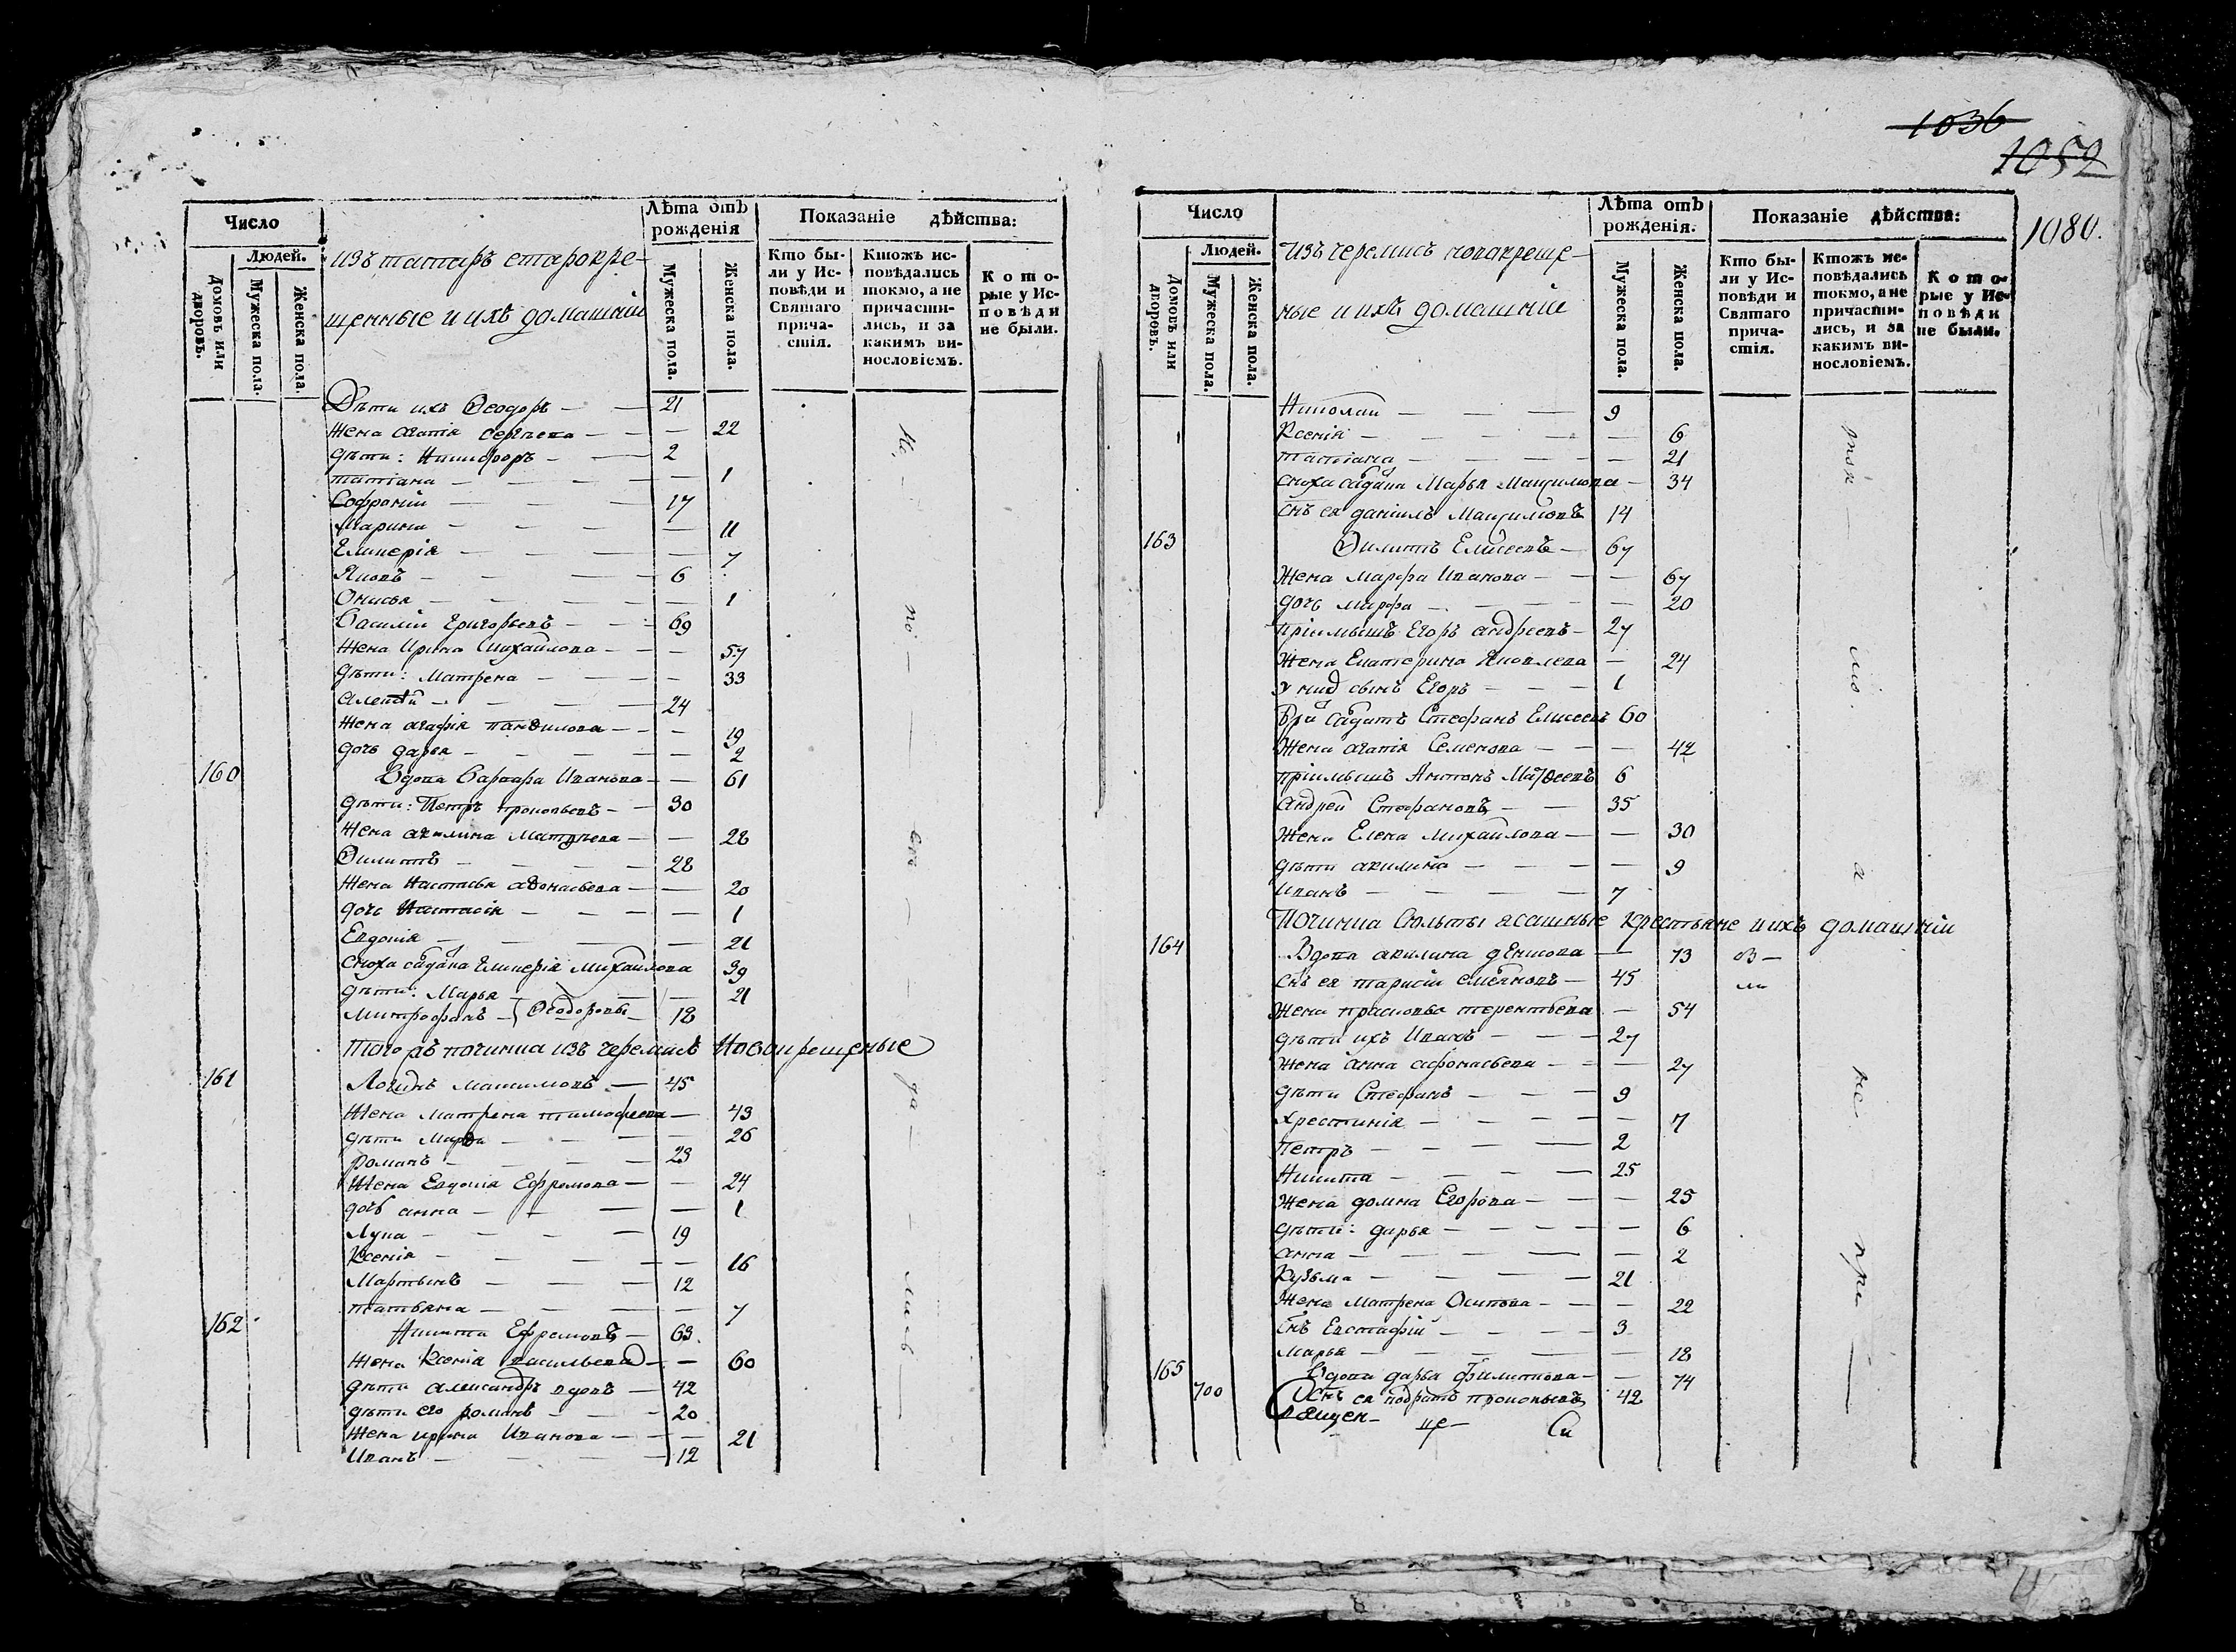 1036
1052
1080.
Число
Людей.
Домовъ или дворовъ.
Мужеска пола.
Женска пола.
изъ татаръ старокре-
щенные и ихъ домашніи
Лѣта отъ рожденія
Мужеска пола.
Женска пола.
Показаніе дѣйства:
Кто бы-
ли у Ис-
повѣди и
Святаго
прича-
стія.
Ктожъ ис-
повѣдались
токмо, а не
причасти-
лись, и за
какимъ ви-
нословіемъ.
Кото-
рые у Ис-
повѣди
не были.
Дѣти ихъ Ѳеодоръ — 21
Жена Агапія Сергеева — 22
дѣти: Никифоръ — 2
татіана — 1
Софроній — 17
Марина — 11
Гликерія — 7
Яковъ — 6
Онисья — 1
Василій Григорьевъ — 69
Жена Ирина Михайлова — 57
дѣти: Матрена — 33
Алексѣй — 24
Жена Агафія Панѳилова — 19
дочь дарья — 2
160 Вдова Варвара Иванова — 61
дѣти: Петръ Прокопьевъ — 30
Жена акилина Матвѣева — 28
Ѳилиппъ — 28
Жена Настасья аѳонасьева — 20
дочь Настасія — 1
Евдокія — 21
Сноха вдова Гликерія Михайлова 39
дѣти: Марья — 21
Митрофанъ — Ѳеодоровы — 18
Того жъ починка изъ черемисъ Новокрещеные
161 Логинъ Максимовъ — 45
Жена Матрена тимофеева — 43
дѣти Марѳа — 26
романъ — 23
Жена Евдокія Ефремова — 24
дочь анна — 1
Лука — 19
Ксенія — 16
Мартынъ — 12
татьяна — 7
162 Никита Ефремовъ — 63.
Жена Ксенія васильева — 60
дѣти александръ вдовъ — 42
дѣти его романъ — 20
Жена ирина Иванова — 21
Иванъ — 12
Не — по — ве — да — лись
Число
Людей.
Домовъ или дворовъ.
Мужеска пола.
Женска пола.
Изъ черемисъ новокреще-
ные и ихъ домашніи
Лѣта отъ рожденія.
Мужеска пола.
Женска пола.
Показаніе дѣйства:
Кто бы-
ли у Ис-
повѣди и
Святаго
прича-
стія.
Ктожъ ис-
повѣдались
токмо, а не
причасти-
лись, и за
какимъ ви-
нословіемъ.
Кото-
рые у Ис-
повѣди
не были.
Николай — 9
Ксенія — 6
татіана — 21
Сноха вдова Марья Максимова — 34
снъ ея даніилъ Максимовъ 14
163 Ѳилиппъ Елисеевъ — 67
Жена Марфа Иванова — 67
дочь марфа — 20
пріимышъ Егоръ андреевъ — 27
Жена Екатерина Яковлева — 24
у них сынъ Егоръ — 1
Стефанъ Елисеевъ 60
Жена агапія Семенова — 42
пріимышъ Антонъ Маѳѳеевъ 6
Андрей Стефановъ — 35
Жена Елена Михайлова — 30
дѣти акилина — 9
Иванъ — 7
Починка ясашные крестьяне и ихъ домашніи
164 Вдова акилина — 73
снъ ея тарасій — 45
Жена прасковья терентьева — 54
дѣти ихъ Иванъ — 27
Жена анна афонасьева — 27
дѣти Стефанъ — 9
Хрестинія — 7
Петръ — 2
Никита — 25
Жена домна Егорова — 25
дѣти: дарья — 6
анна — 2
Кузьма — 21
Жена Матрена Осипова — 22
снъ Евстафій — 3
Марья — 18
165 Вдова дарья Филиппова — 74
700 Снъ ея Прокопьевъ 42
Священ- це- Си